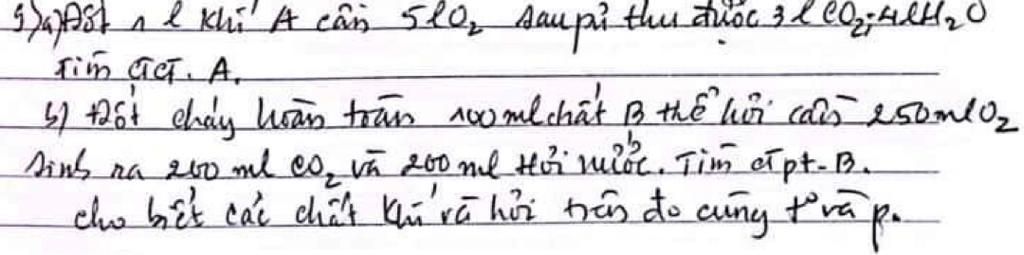 5) a) Đốt 1 l khí A cần 5lO₂ sau pứ thu được 3l CO₂; 4lH₂O
Tìm CTCT. A.
b) Đốt cháy hoàn toàn 100 ml chất B thể hơi cần 250mlO₂
sinh ra 200 ml CO₂ và 200 ml Hơi nước. Tìm ctpt-B.
cho biết các chất khí và hơi trên đo cùng t° và p.